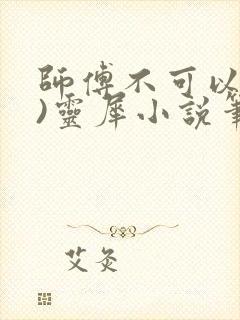 師傅不可以
)靈犀小說筆
艾灸